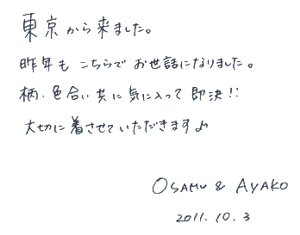 東京から来ました。
昨年も こちらで お世話になりました。
柄、色合い 共に 気に入って 即決!!
大切に 着させていただきます♪
OSAMU & AYAKO
2011. 10. 3